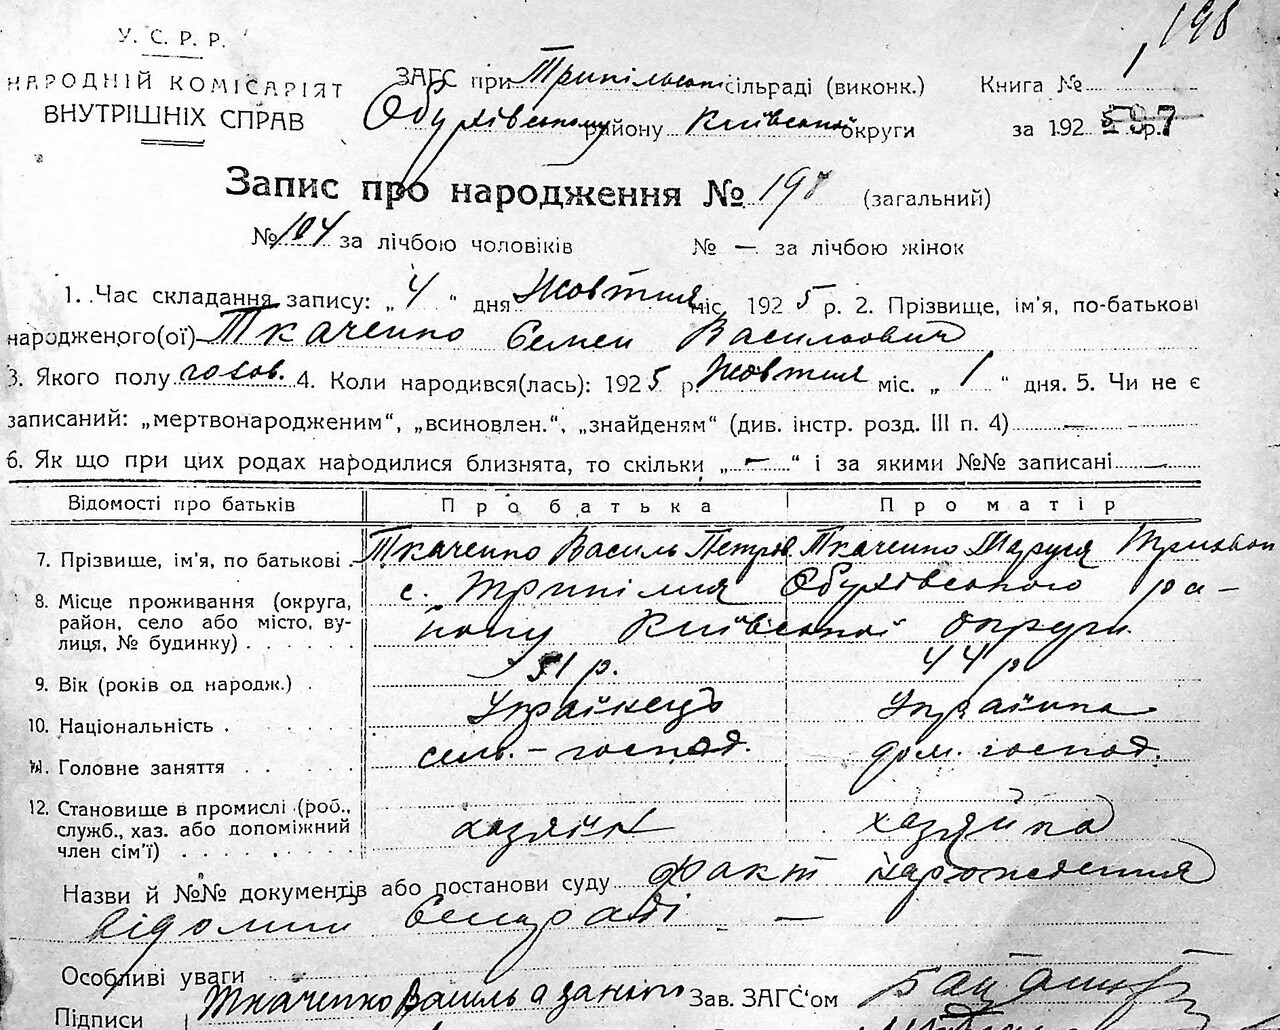 198
У. С. Р. Р.
НАРОДНІЙ КОМІСАРІЯТ
ВНУТРІШНІХ СПРАВ
ЗАГС при Трипільській сільраді (виконк.) Книга №
Обухівському району Київської округи за 192 р.
Запис про народження № 198 (загальний)
№ 104 за лічбою чоловіків № — за лічбою жінок
1. Час складання запису: „4" дня Жовтня міс. 1925 р. 2. Прізвище, ім'я, по-батькові
народженого(ої) Ткаченко Семен Васильович
3. Якого полу чолов. 4. Коли народився(лась): 1925 р. Жовтня міс. „1" дня. 5. Чи не є
записаний: „мертвонародженим", „всиновлен.", „знайденям" (див. інстр. розд. III п. 4) —
6. Як що при цих родах народилися близнята, то скільки „—" і за якими №№ записані —
Відомості про батьків Про батька Про матір
7. Прізвище, ім'я, по батькові Ткаченко Василь Петров. Ткаченко Маруся
8. Місце проживання (округа, район, село або місто, вулиця, № будинку) с. Трипілля Обухівського ра-
йону Київської округи
9. Вік (років од народж.) 51 р. 44 р
10. Національність Українець Українка
11. Головне заняття сель.-господ. дом. господ.
12. Становище в промислі (роб., служб., хаз. або допоміжний член сім'ї) хазяїн хазяйка
Назви й №№ документів або постанови суду факт народження
відомий Сельраді —
Особливі уваги
Підписи Ткаченко Василь а за нього Зав. ЗАГС'ом